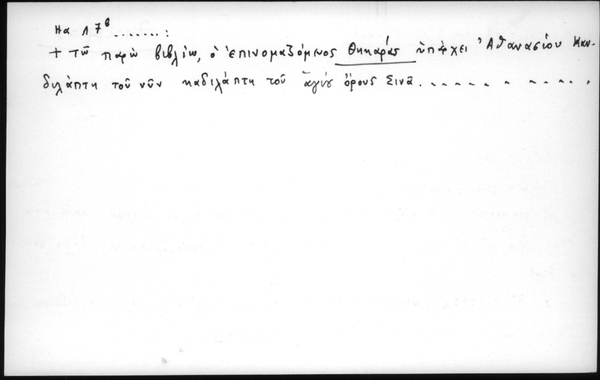 На л 7б.......:
+ τῶ παρῶ βιβλίω, ὁ ἐπινομαζόμνος Θηκαρᾶς ὑπάρχει Ἀθανασίου Καν-
διλάπτη τοῦ νῦν καδιλάπτη τοῦ ἁγίȣ ὄρους Σινᾶ...........